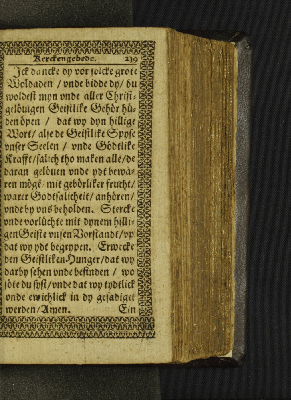 Kerckengebede. 239
Jck dancke dy vor solcke grote
Woldaden / vnde bidde dy / du
woldest myn vnde aller Christ-
gelövigen Geistlike Gehör hü-
den öpen / dat wy dyn hillige
Wort / alse de Geistlike Spyse
vnser Seelen / vnde Gödtlike
Krafft / salich tho maken alle / de
daran gelöuen vnde ydt bewa-
ren mögē / mit gebörliker frucht /
warer Godtsalicheit / anhören /
vnde by vns beholden. Stercke
vnde vorlüchte mit dynem hilli-
gen Geiste vnsen Vorstandt / vp
dat wy ydt begrypen. Erwecke
den Geistliken Hunger / dat wy
darby sehen vnde befinden / wo
söte du syst / vnde dat wy tydtlick
vnde ewichlick in dy gesadiget
werden / Amen. Ein